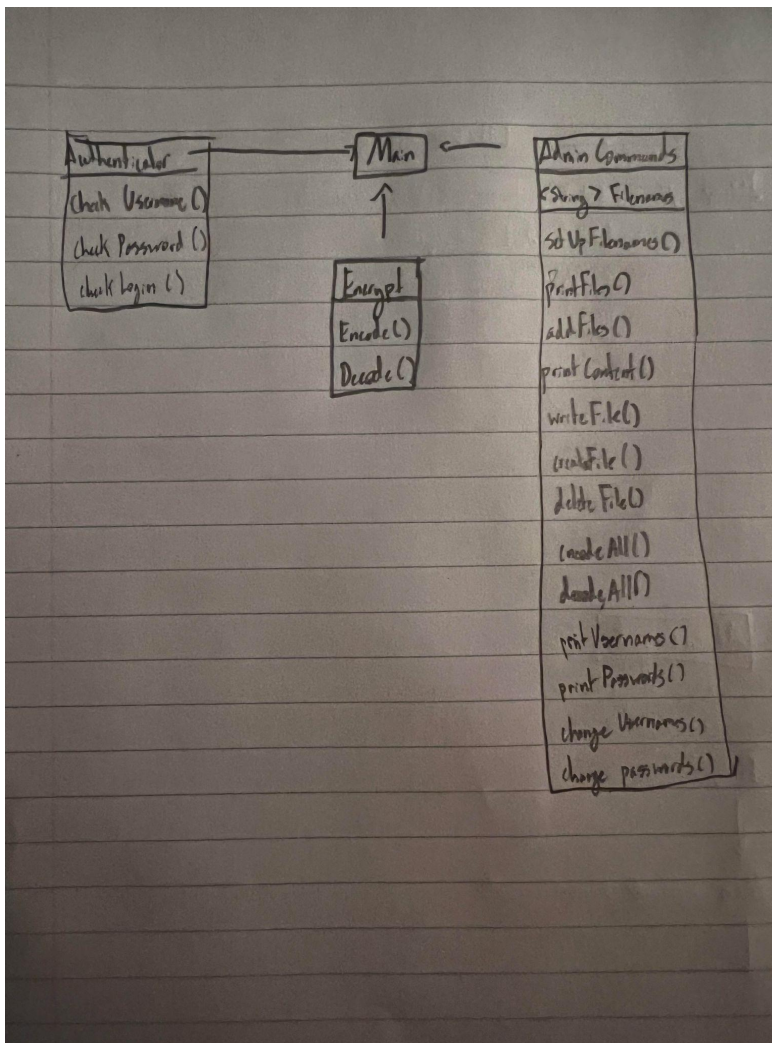 Authenticator
check Username()
check Password()
check Login()
Main
Encrypt
Encode()
Decode()
Admin Commands
<String> Filenames
setUpFilenames()
printFiles()
addFiles()
printContent()
writeFile()
createFile()
deleteFile()
encodeAll()
decodeAll()
printUsernames()
print Passwords()
change Usernames()
change passwords()